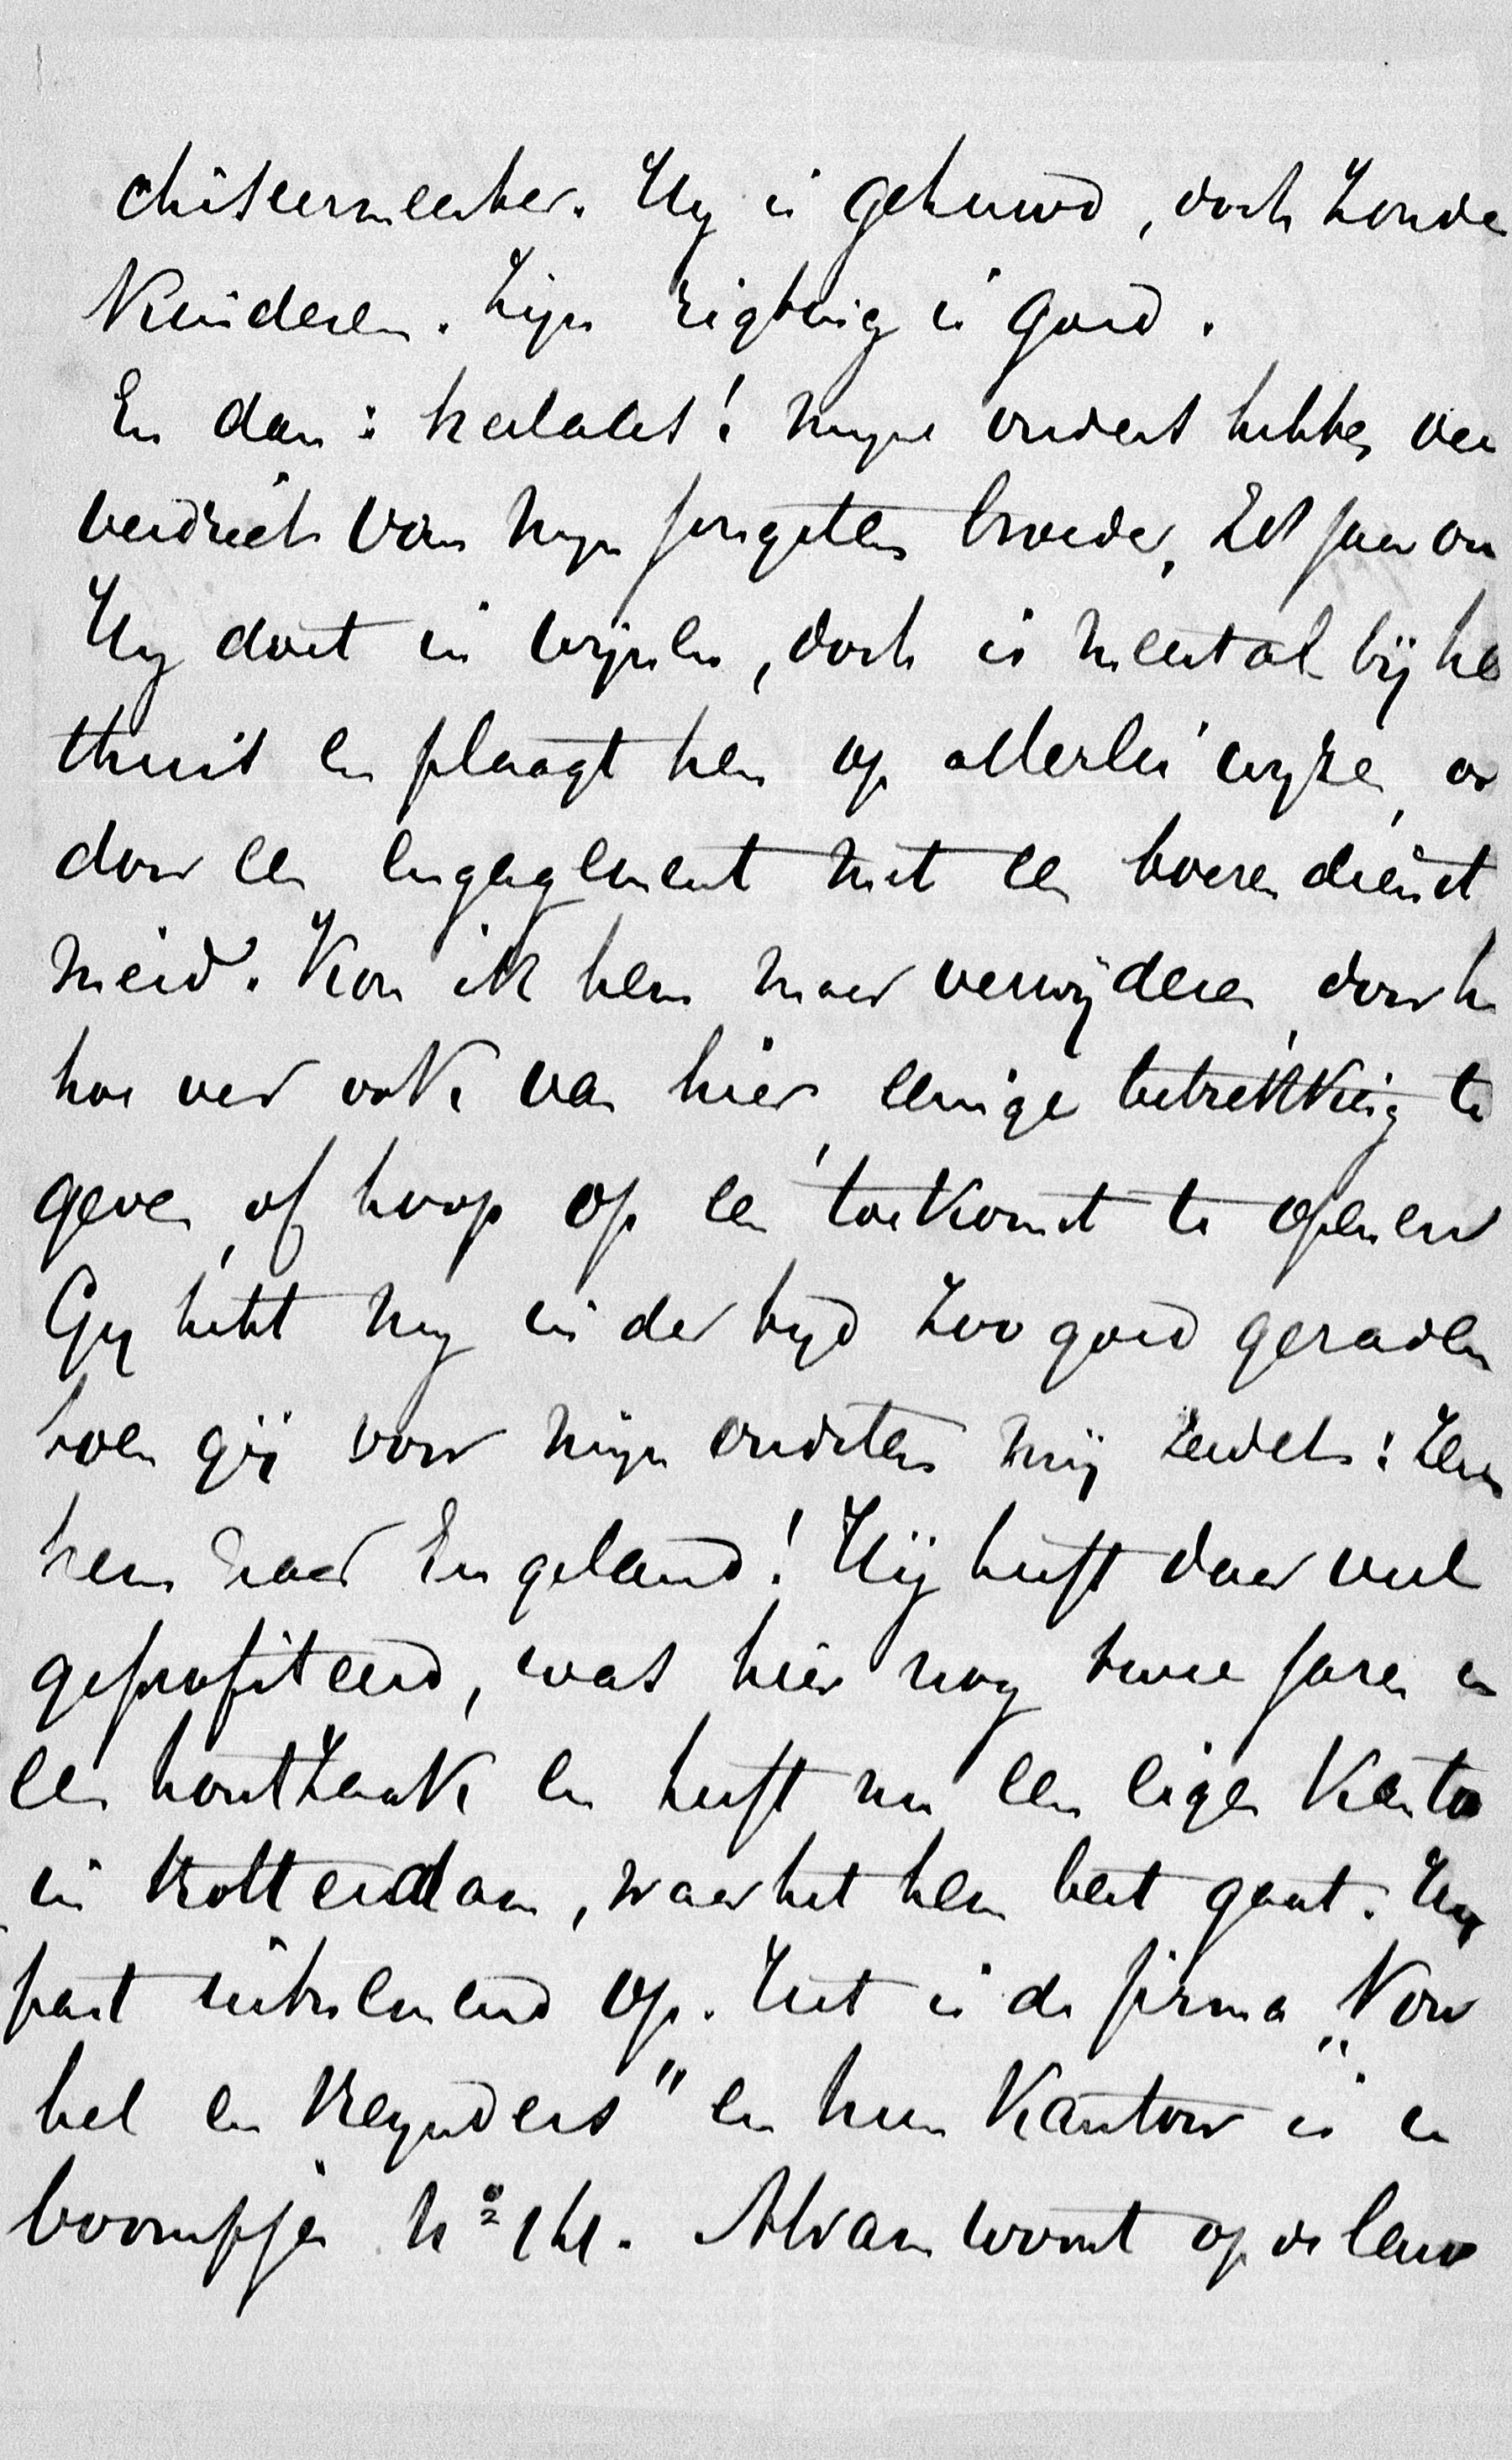 chiseermeester. Hy is gehuwd, doch zonde
Kinderen. Zijn rigting is goed.
En dan: helaas! myne ouders hebben vee
verdriet van myn jongsten broeder, jaar ou
Hy doet in wijnen, doch is meestal bij he
thuis en plaagt hen op allerlei wyzen, oo
door een engagement met een boeren dienst
meid. Kon ik hem maar verwijderen, door h
hoe ver ook van hier, eenige betrekking te
geven, of hoop op een toekomst te openen
Gy hebt my in der tyd zoo goed geraden
toen gij voor mijn oudsten mij zeidet: Zen
hem naar Engeland! Hij heeft daar veel
geprofiteerd, was hier nog twee jaren in
een houtzaak en heeft nu een eigen Kanto
in Rotterdam, waar het hem best gaat. Hy
past uitnemend op. Het is de firma „Van
hel en Reynders" en hun Kantoor is in
boompjes No 141. Alvan woont op de lauw